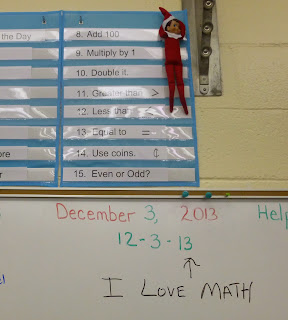 the Day
8. Add 100
9. Multiply by 1
10. Double it.
11. Greater than >
12. Less than <
13. Equal to =
14. Use coins. ¢
15. Even or Odd?
ore
r
December 3, 2013 Help
12-3-13
I LOVE MATH